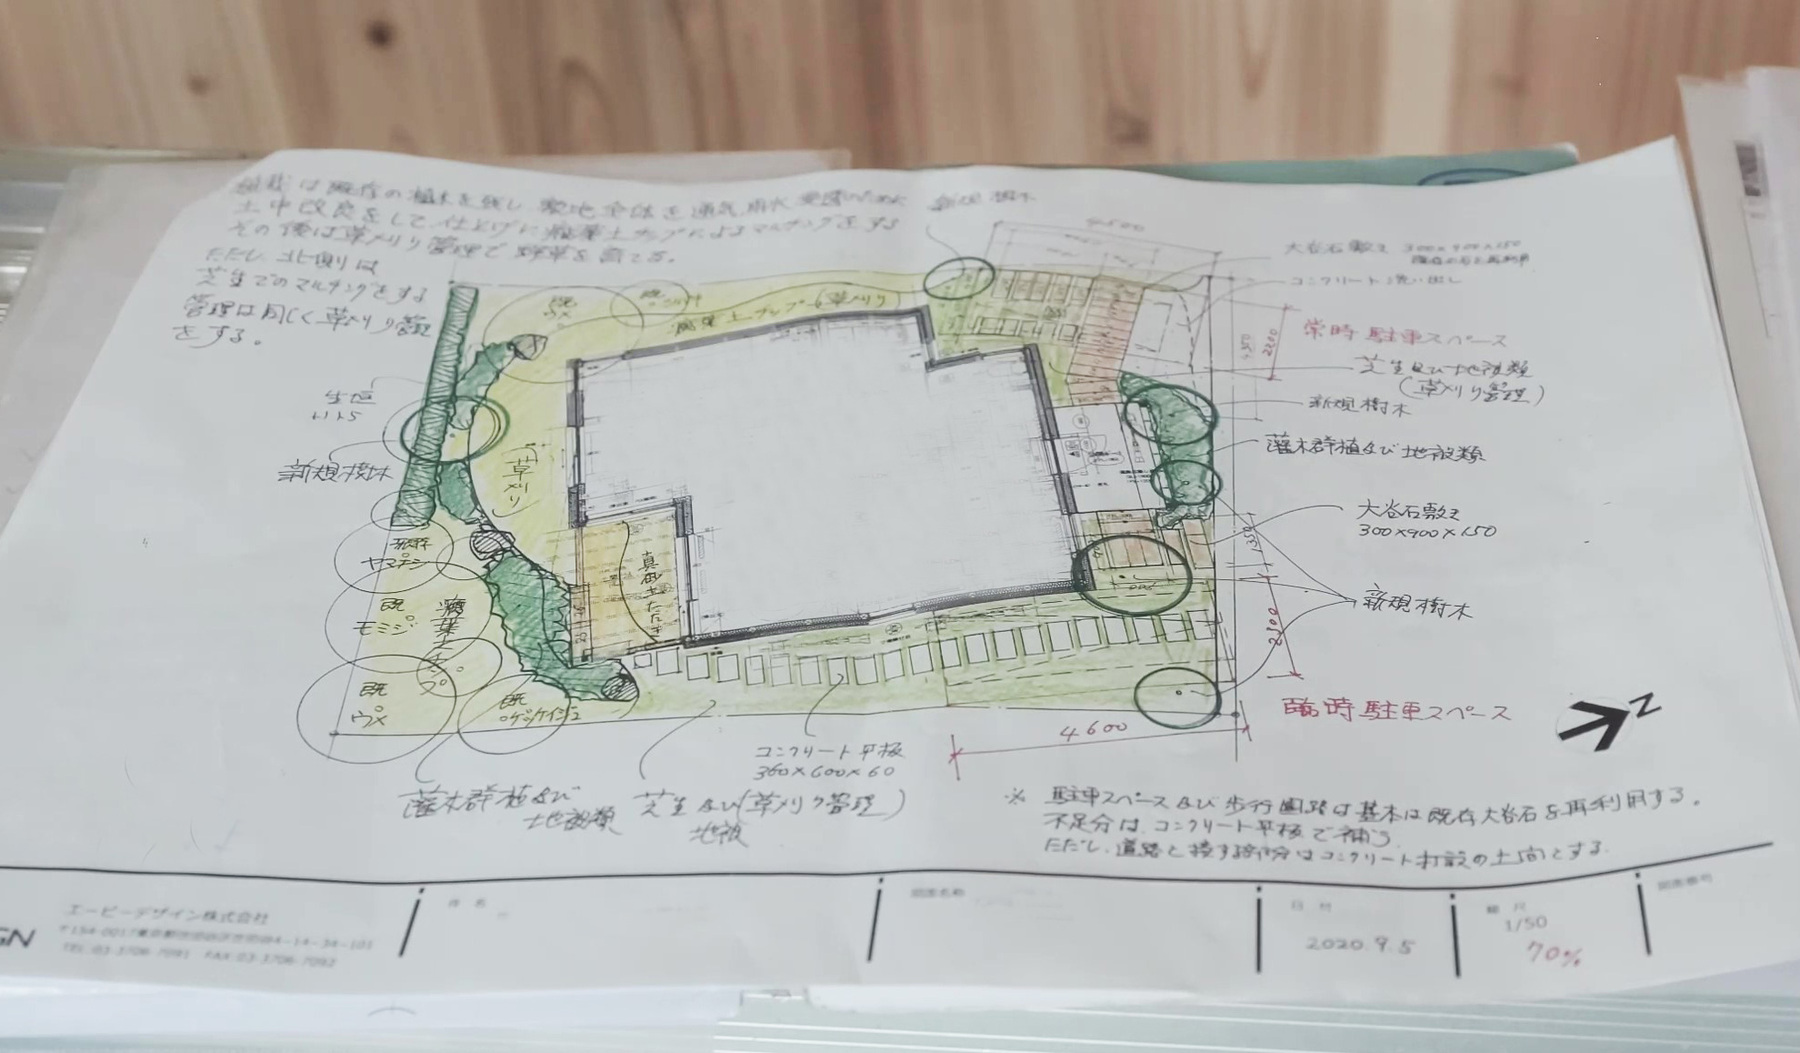 植栽は既存の植木を残し 敷地全体を通気
土中改良をして仕上げに腐葉土チップによるマルチングをする
その後は草刈り管理で野草を育てる。
ただし、北側は
芝生でのマルチングをする
管理は同じく草刈り管理
をする。
新規樹木
4500
大谷石敷き 300×900×150
コンクリート洗い出し
常時 駐車スペース
2200
芝生及び地被類
(草刈り管理)
新規樹木
灌木群植及び地被類
大谷石敷き
300×900×150
1350
新規樹木
2300
臨時 駐車スペース
4600
N
生垣
新規樹木
既
ウメ
既
腐葉土チップ(草刈り)
草刈り
既存
ヤマナシ
既
モミジ
腐葉土チップ
既
ウメ
既
ゲッケイジュ
真砂土たたき
コンクリート平板
360×600×60
灌木群植及び
地被類
芝生及び(草刈り管理)
地被
※ 駐車スペース及び歩行園路は基本は既存大谷石を再利用する。
不足分は、コンクリート平板で補う
ただし、道路と接する部分はコンクリート打設の土間とする。
GN
エーピーデザイン株式会社
〒154-0017東京都世田谷区世田谷4-14-34-101
TEL:03-3706-7091 FAX:03-3706-7092
件 名
図面名称
日 付
2020.9.5
縮 尺
1/50
70%
図面番号